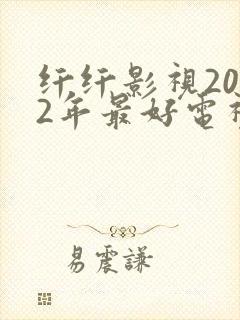 纤纤影視20
2年最好電視
易震謙